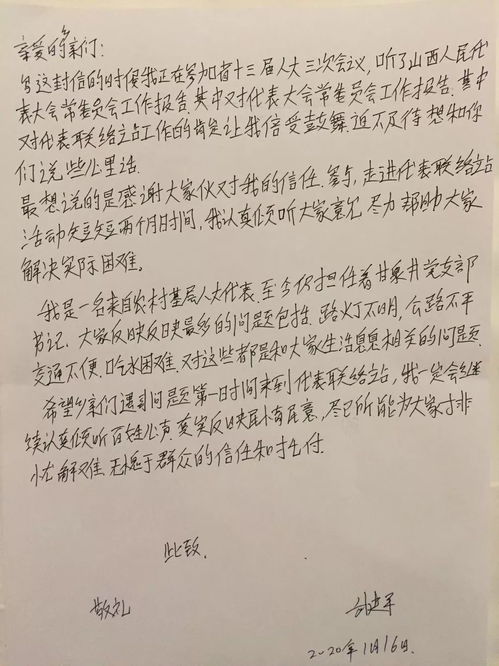 亲爱的乡亲们:
写这封信的时候我正在参加省十三届人大三次会议,听了山西人民代
表大会常委员会工作报告.其中对代表大会常委员会工作报告.其中
对代表联络站工作的肯定让我倍受鼓舞.迫不及待想和你
们说些心里话.
最想说的是感谢大家伙对我的信任.参与,走进代表联络站
活动短短两个月日时间,我认真倾听大家意见 尽力帮助大家
解决实际困难。
我是一名来自农村基层人大代表.至今仍担任着甘泉井党支部
书记.大家反映反映最多的问题包括.路灯不明,公路不平
交通不便.吃水困难.对这些都是和大家生活息息相关的问题.
希望乡亲们遇到问题第一时间来到代表联络站,我一定会继
续认真倾听百姓心声.真实反映民情民意,尽己所能为大家排
忧解难.无愧于群众的信任和托付.
此致.
敬礼
2020年1月16日.